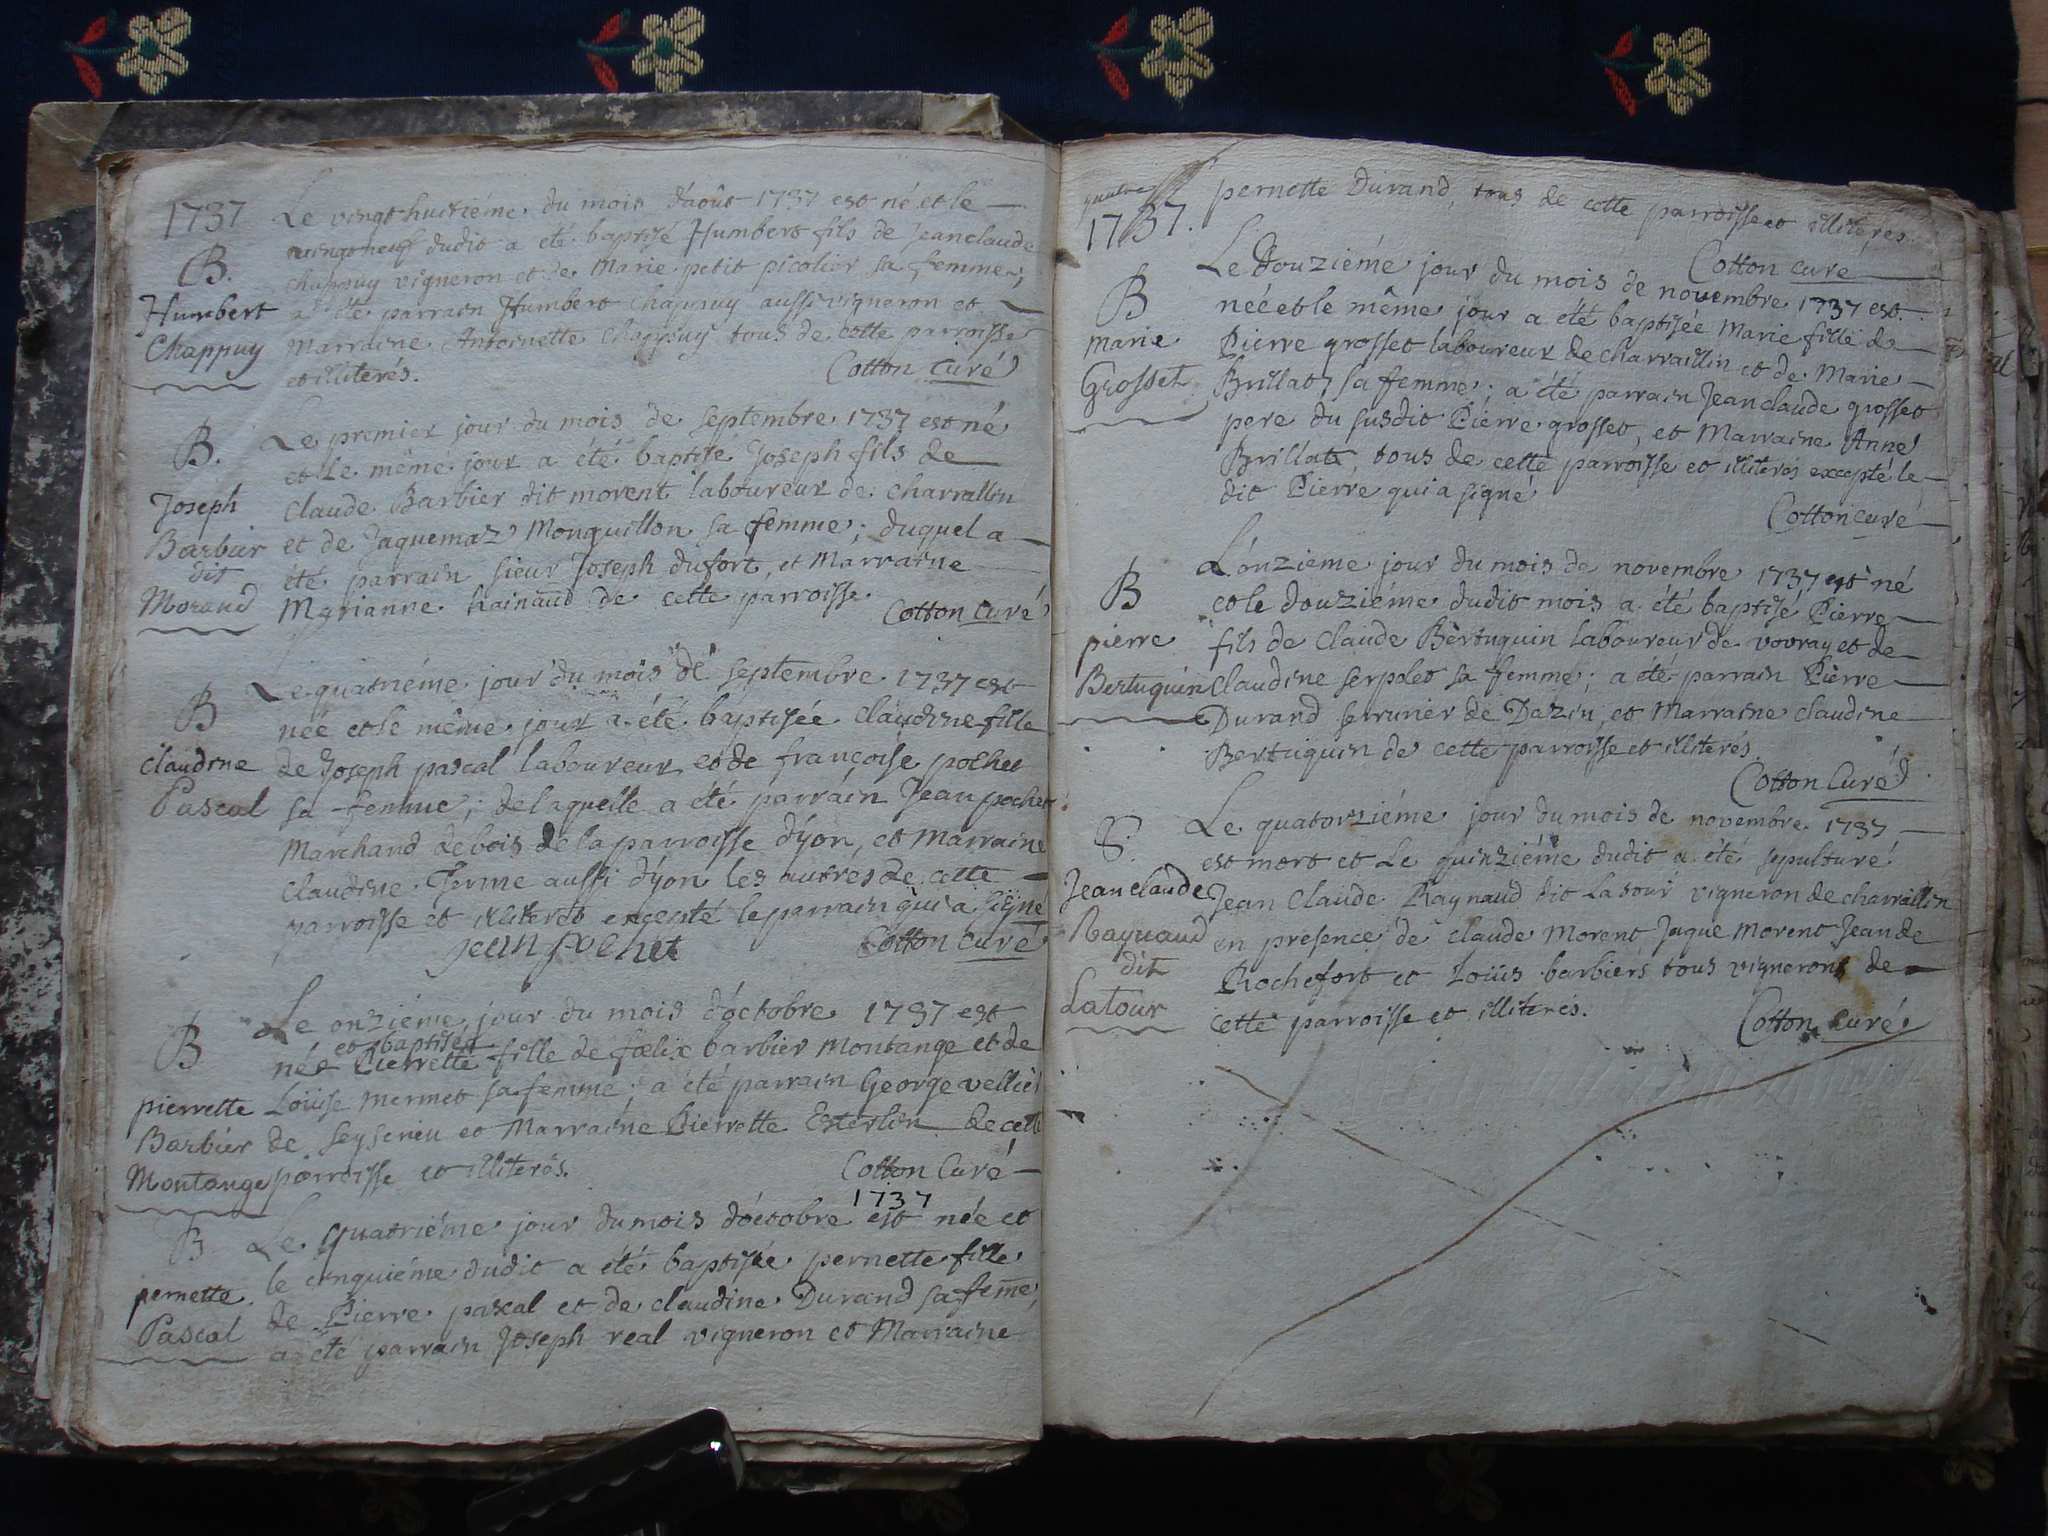 1737
Le vingt huitiéme du mois d'août 1737 est né et le
vingt neuf dudit a eté baptisé Humbert fils de jean claude
B.
chappuy vigneron et de Marie petit picolier sa femme;
Humbert
a eté parrain Humbert chappuy aussi vigneron et
Chappuy
Marraine Antoinette Chappuy tous de cette parroisse
et illiterés.
Cotton curé
B.
Le premier jour du mois de septembre 1737 est né
et le même jour a été baptisé Joseph fils de
Joseph
Claude Barbier dit morent laboureur de charraillin
Barbier
et de Jaquemaz Monguillon sa femme; duquel a
dit
été parrain sieur Joseph dufort, et Marraine
Morand
Marianne hainaud de cette parroisse.
Cotton curé
B
Le quatriéme jour du mois de septembre 1737 est
née et le même jour a été baptisée claudine fille
claudine
de Joseph pascal laboureur et de françoise pochet
Pascal
sa femme; de laquelle a été parrain Jean pochet
Marchand de bois de la parroisse d'yon, et Marraine
claudine ferme aussi d'yon les autres de cette
parroisse et illiterés excepté le parrain qui a signé
jean pochet
Cotton curé
B
Le onziéme jour du mois d'octobre 1737 est
et baptiséé
née Pierrette fille de fœlix barbier Montange et de
pierrette
Loüise mermet sa femme; a été parrain George vellier
Barbier
de seyserieu et Marraine Pierrette Esterlin de cette
Montange
parroisse et illiterés.
Cotton Curé
1737
B
Le quatriéme jour du mois d'octobre est née et
le cinquiéme dudit a été baptisée pernette fille
pernette
de Pierre pascal et de claudine Durand sa feme,
Pascal
a été parrain Joseph real vigneron et Marraine
1737.
pernette Durand, tous de cette parroisse et illiterés.
Cotton curé
B
Le Douziéme jour du mois de novembre 1737 est
née et le même jour a été baptisée Marie fille de
marie
Pierre grosset laboureur de charraillin et de Marie
Grosset
Brillat sa femme; a été parrain Jean claude grosset
pere du susdit Pierre grosset, et Marraine Anne
Brillat, tous de cette parroisse et illiterés excepté le
dit Pierre qui a signé
Cotton curé
B
L'onzieme jour du mois de novembre 1737 est né
et le douziéme dudit mois a été baptisé Pierre
pierre
fils de Claude Bertuquin laboureur de vovray et de
Bertuquin
claudine serpolet sa femme; a été parrain Pierre
Durand serrurier de Dazin, et Marraine claudine
Bertuquin de cette parroisse et illiterés
Cotton Curé
S.
Le quatorziéme jour du mois de novembre 1737
est mort et Le quinziéme dudit a eté sepulturé
Jean claude
Jean Claude Raynaud dit Latour vigneron de charraillin
Raynaud
en presence de claude Morent Jaque Morent Jean de
dit
Rochefort et Loüis barbiers tous vignerons de
Latour
cette parroisse et illiterés.
Cotton curé